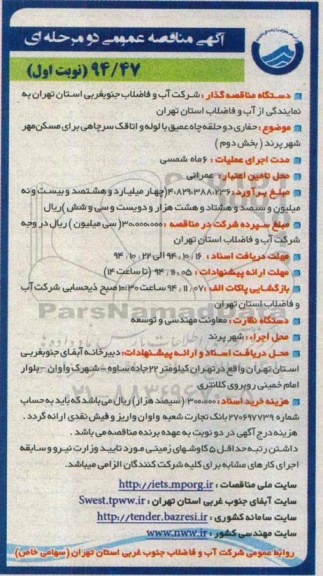 آگهی مناقصه عمومی دو مرحله ای
۹۴/۴۷ (نوبت اول)
دستگاه مناقصه گذار : شرکت آب و فاضلاب جنوبغربی استان تهران به
نمایندگی از آب و فاضلاب استان تهران
موضوع : حفاری دو حلقه چاه عمیق با لوله و اتاقک سرچاهی برای مسکن مهر
شهر پرند ( بخش دوم )
مدت اجرای عملیات : ۶ ماه شمسی
محل تامین اعتبار : عمرانی
مبلغ برآورد : ۴٫۸۲۹٫۳۸۸٫۲۳۶ (چهار میلیارد و هشتصد و بیست و نه
میلیون و سیصد و هشتاد و هشت هزار و دویست و سی و شش ) ریال
مبلغ سپرده شرکت در مناقصه : ۳۰٫۰۰۰٫۰۰۰ ( سی میلیون ) ریال در وجه
شرکت آب و فاضلاب استان تهران
مهلت دریافت اسناد : ۹۴٫۱۰٫۱۶ الی ۹۴٫۱۰٫۲۲
مهلت ارائه پیشنهادات : ۹۴٫۱۱٫۰۵ (تا ساعت ۱۴)
بازگشایی پاکات الف : ۹۴٫۱۱٫۰۷ ساعت ۱۰:۳۰ صبح ذیحسابی شرکت آب
و فاضلاب استان تهران
دستگاه نظارت : معاونت مهندسی و توسعه
محل اجرا : شهر پرند
محل دریافت اسناد و ارائه پیشنهادات : دبیرخانه آبفای جنوبغربی
استان تهران واقع در تهران کیلومتر ۲۲ جاده ساوه - شهرک وآوان - بلوار
امام خمینی روبروی کلانتری
هزینه خرید اسناد : ۳۰۰٫۰۰۰ (سیصد هزار) ریال می باشد که باید به حساب
شماره ۲۷۰۶۹۷۷۳۹ بانک تجارت شعبه واوان واریز و فیش نقدی ارائه گردد .
هزینه درج آگهی در دو نوبت به عهده برنده مناقصه می باشد .
داشتن رتبه حداقل ۵ کاوشهای زمینی مورد تایید وزارت نیرو و سابقه
اجرای کار های مشابه برای کلیه شرکت کنندگان الزامی میباشد.
سایت ملی مناقصات : http://iets.mporg.ir
سایت آبفای جنوب غربی استان تهران : Swest.tpww.ir
سایت سامانه کشوری : http://tender.bazresi.ir
سایت مهندسی کشور : www.nww.ir
روابط عمومی شرکت آب و فاضلاب جنوب غربی استان تهران (سهامی خاص)
ParsNamadData